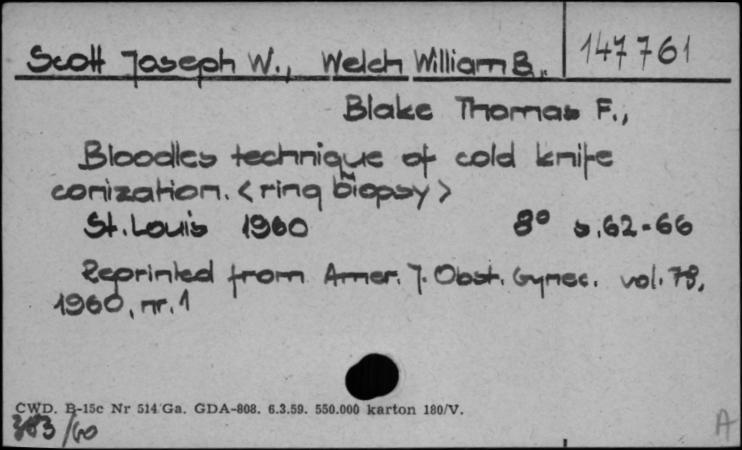 Scott Joseph W., Welch William B.,
147761
Blake Thomas F.,
Bloodles technique of cold knife
conization. <ring biopsy>
St. Louis 1960 8° s. 62-66
Reprinted from Amer. J. Obst. Gynec. vol. 79,
1960, nr. 1
CWD. B-15c Nr 514 Ga. GDA-808. 6.3.59. 550.000 karton 180/V.
383/60
A